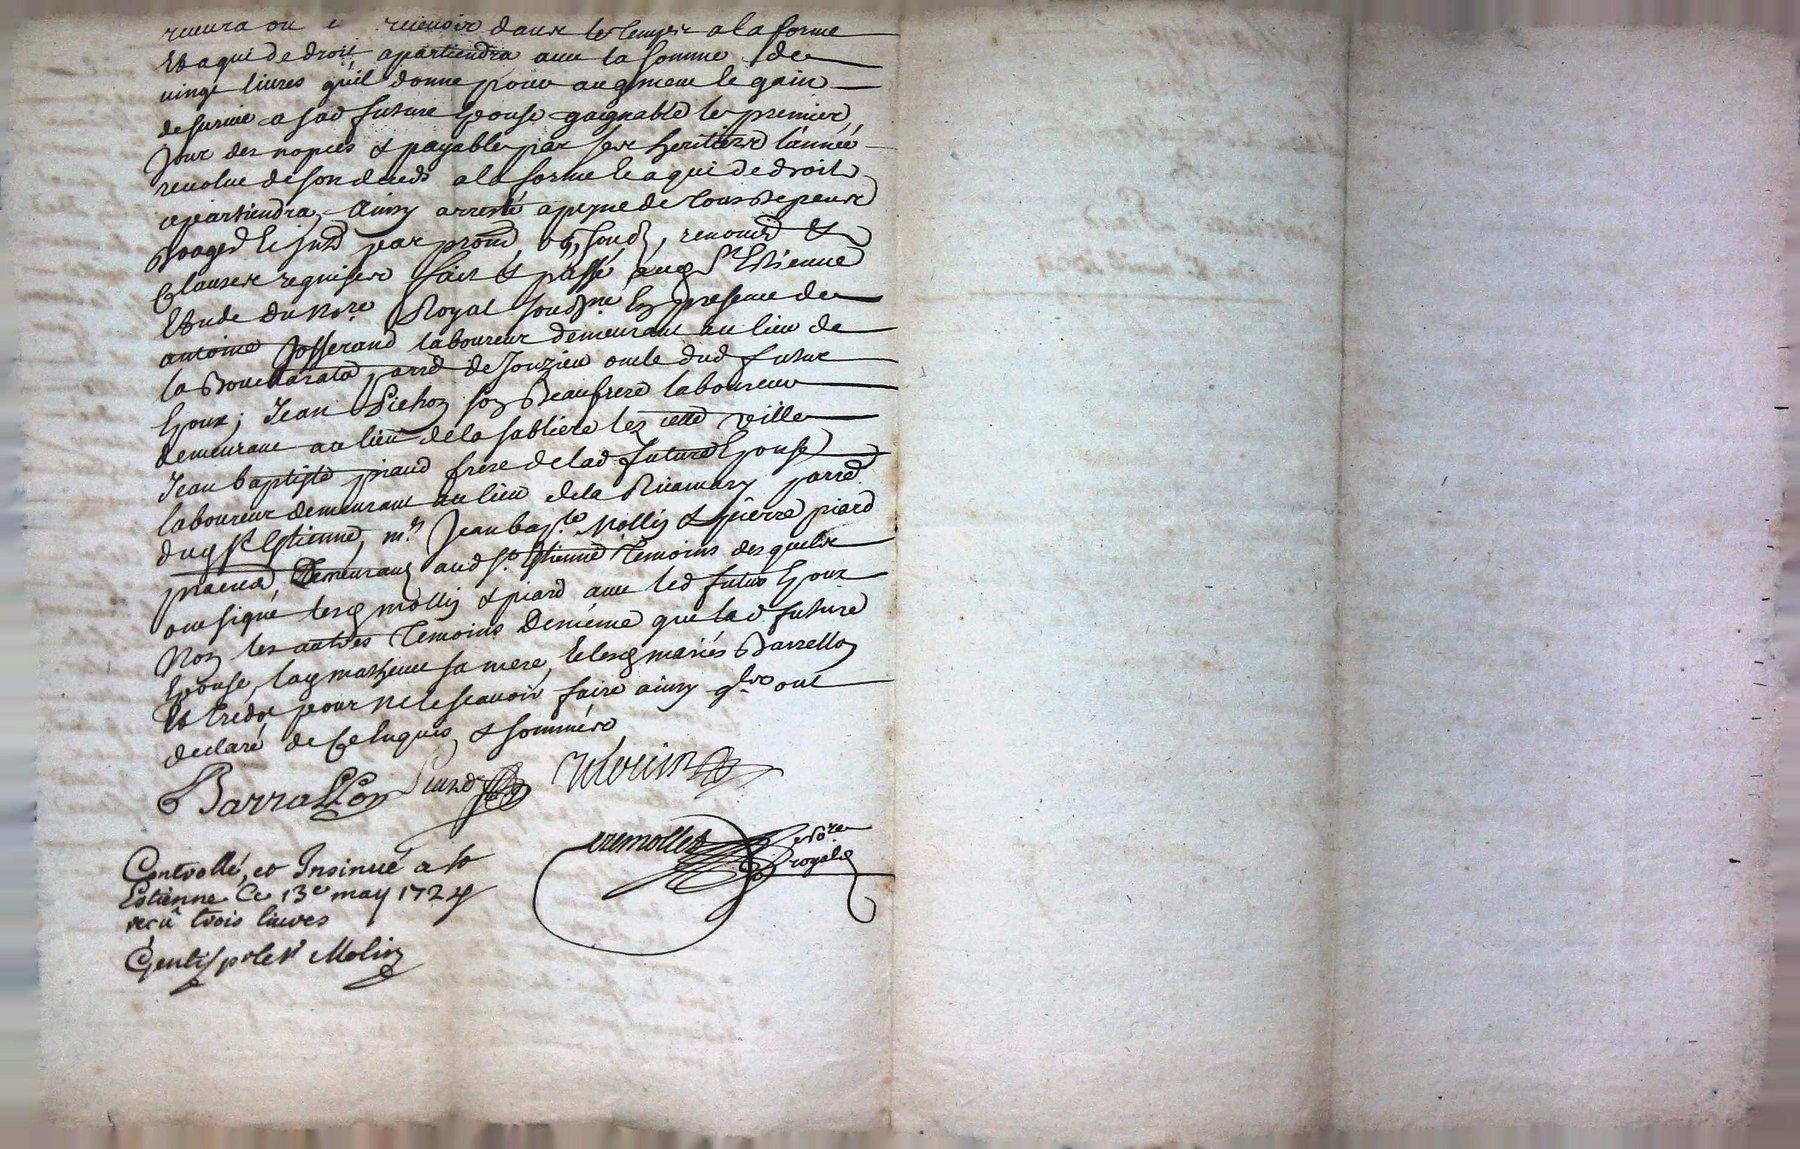 recevoir dans les temps a la forme
Et a qui de droit apartiendra avec la somme de
vingt livres qu'il donne pour augment le gain
de survie a sad future Epouse gaignable le premier
Jour des nopces & payable par ses heritiers l'année
revolue de son deceds a la forme Et a qui de droit
apartiendra, Ainsy arresté a peyne de tous depens
par prom, renoncé &
Clauses requises fait & passé aud St Estienne
Etude du Nore Royal En presence de
antoine Josserand laboureur demeurant au lieu de
la de Jonzieu oncle dud futur
Epoux, Jean Pichon son Beaufrere laboureur
demeurant au lieu de la sabliere lez cette ville
Jean baptiste piard frere de lad future Epouse
laboureur demeurant au lieu de la Ricamary parre
dud St Estienne, mr Jean bapte Mollin & pierre piard
Demeurans aud St Estienne Temoins desquels
ont signé lesd mollin & piard avec led futur Epoux
Non les autres Temoins De meme que lad future
Epouse, sa mere, Et lesd mariés Barrallon
Et pour ne le sçavoir faire ainsy qls ont
declaré de Ce Enquis & sommés
Barrallon Piard Mollin
Tremollet Nore
royal
Controllé, et Insinué a St
Estienne Ce 13e may 1724
reçu trois livres
Molin